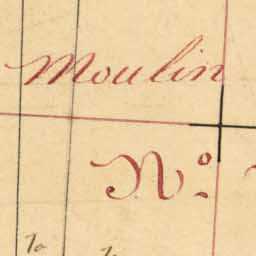 Moulin
Nº.